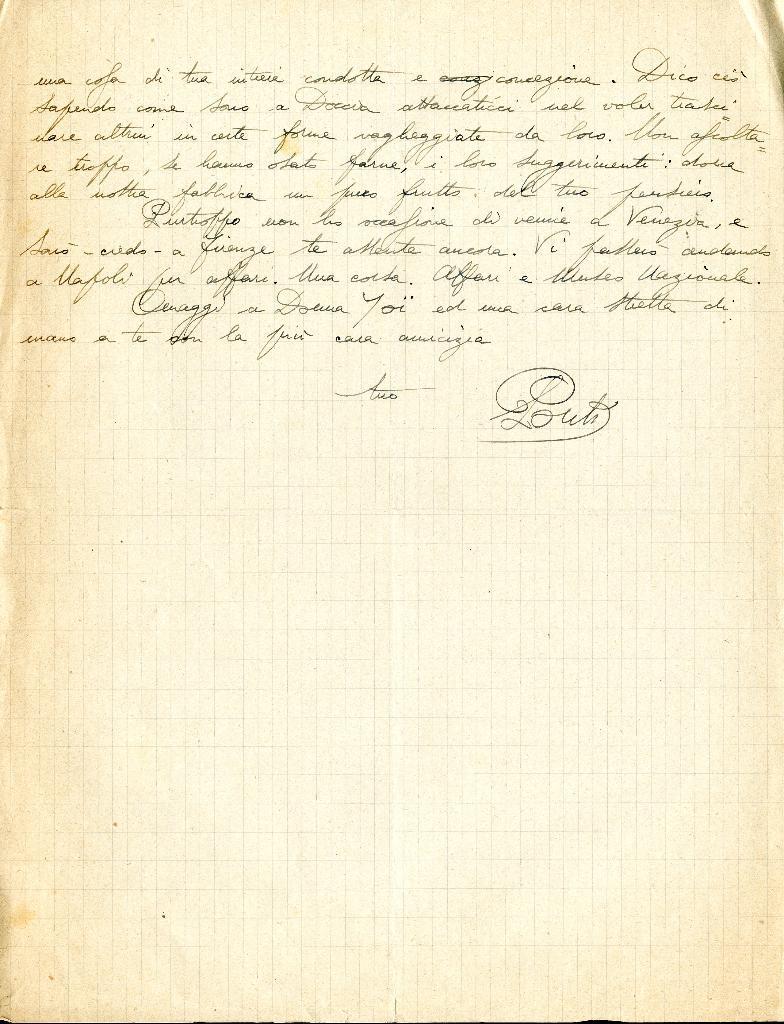 una cosa di tua intiera condotta e conz concezione. Dico ciò
sapendo come sono a Doccia attaccaticci nel voler trasci
nare altrui in certe forme vagheggiate da loro. Non ascolta=
re troppo, se hanno osato farne, i loro suggerimenti: dona
alla nostra fabbrica un puro frutto del tuo pensiero.
Purtroppo non ho occasione di venire a Venezia, e
sarò - credo - a Firenze te assente ancora. Vi passerò andando
a Napoli per affari. Una corsa. Affari e Museo Nazionale.
Omaggi a Donna Yoï ed una cara stretta di
mano a te con la più cara amicizia
tuo
Ponti